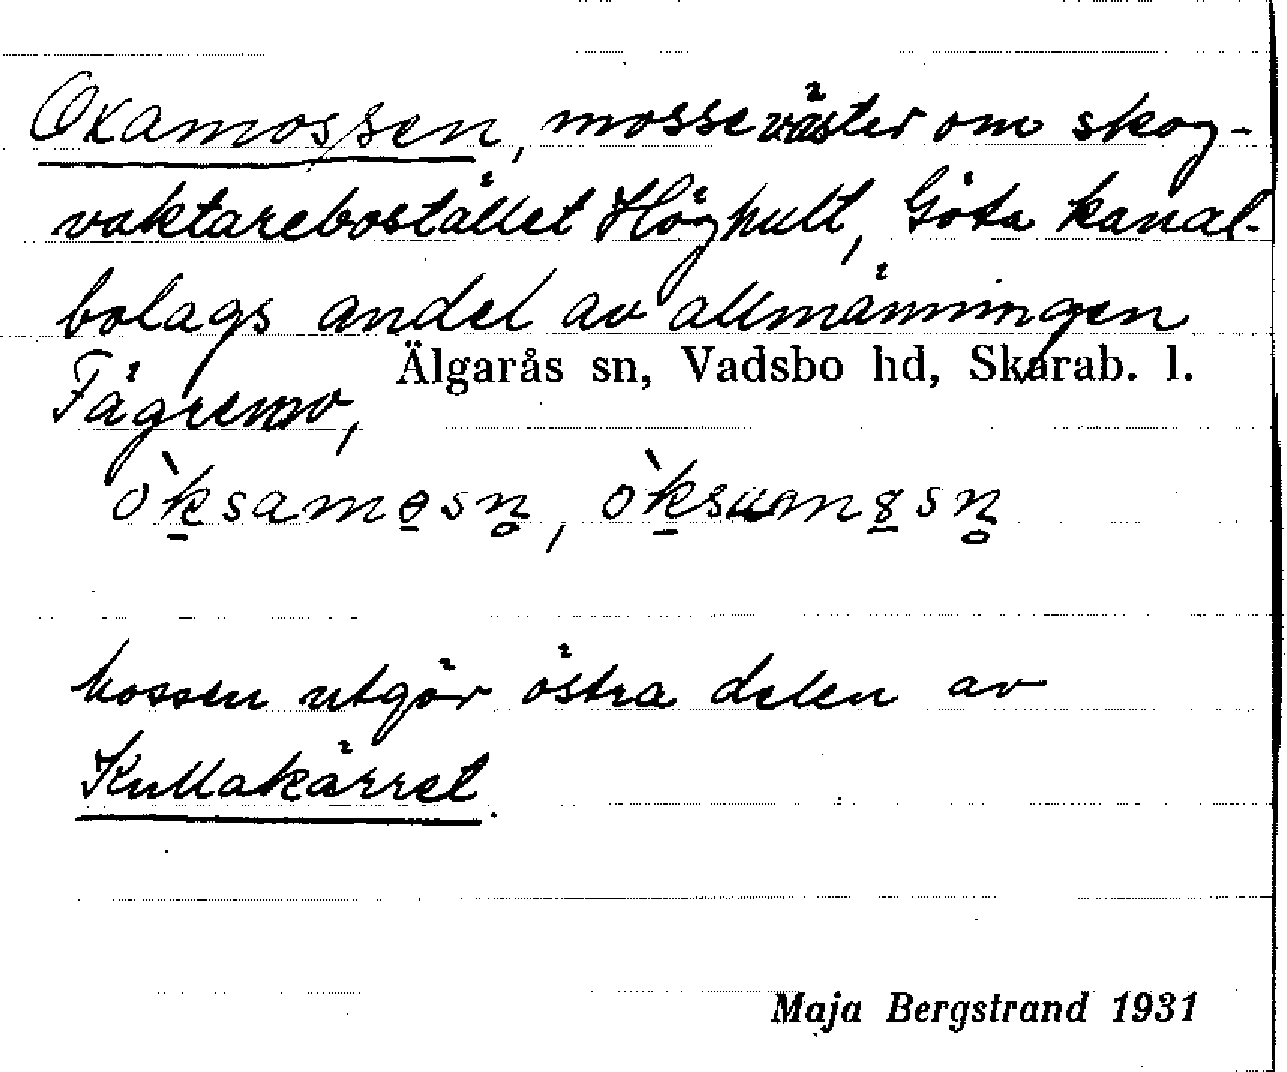 Oxamossen, mosse väster om skog-
vaktarebostället Höghult, Göta kanal-
bolags andel av allmänningen
Fägremo,
Älgarås sn, Vadsbo hd, Skarab. l.
mossen utgör östra delen av
Kullakärret.
Maja Bergstrand 1931